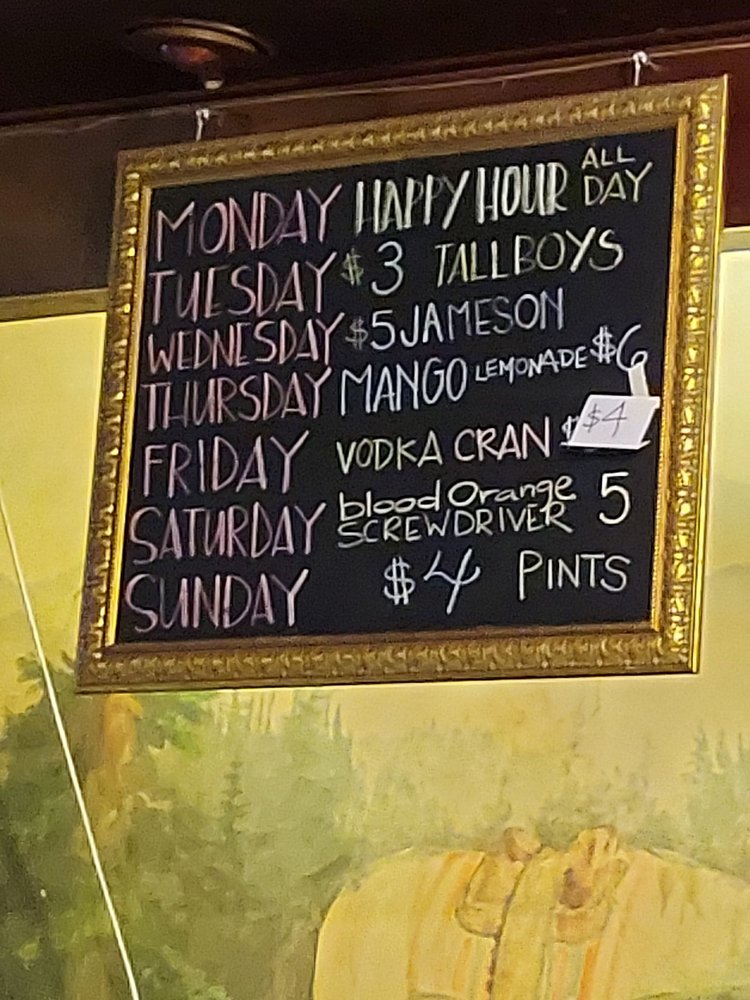 MONDAY HAPPY HOUR ALL DAY
TUESDAY $3 TALLBOYS
WEDNESDAY $5 JAMESON
THURSDAY MANGO LEMONADE $6
FRIDAY VODKA CRAN $ $4
SATURDAY blood Orange SCREWDRIVER 5
SUNDAY $4 PINTS